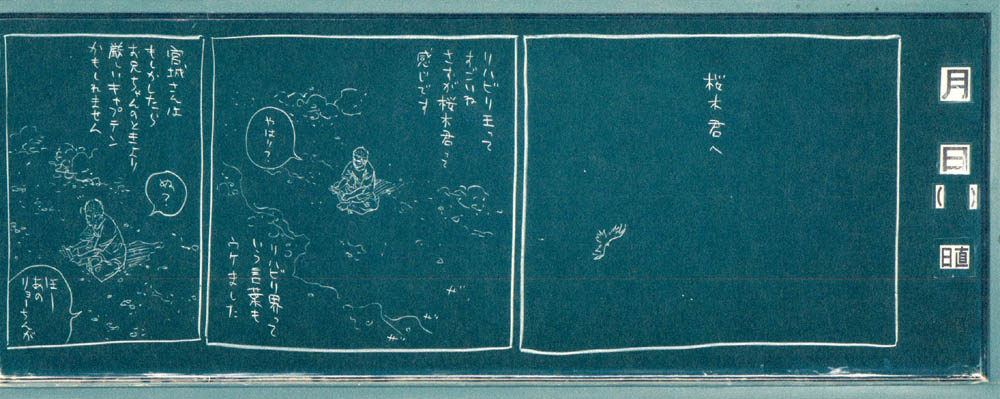 月
日
( )
日直
桜木君へ
リハビリ王って
すごいね
さすが桜木君って
感じです
やはり?
リハビリ界って
いう言葉も
ウケました
ザ
ザザ
ザザ
宮城さんは
もしかしたら
お兄ちゃんのときより
厳しいキャプテン
かもしれません
ぬ?
あの
リョーちんが